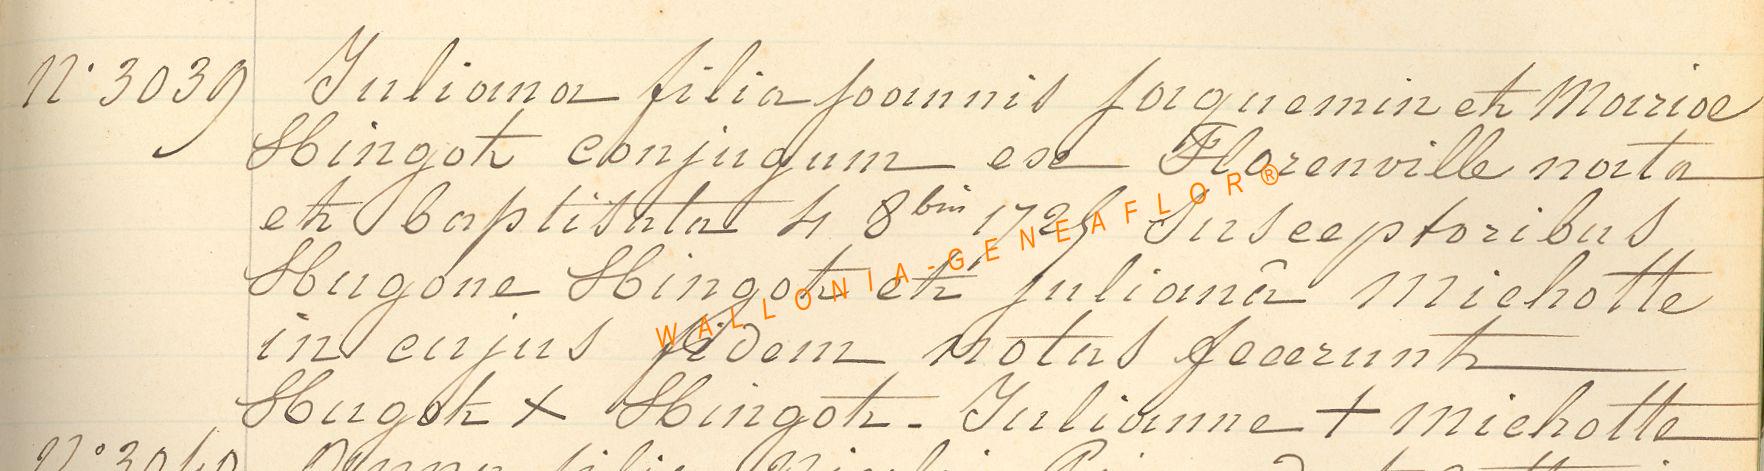 N° 3039 Juliana filia Joannis Jaquemin et Mariae
Hingot conjugum ex Florenville nata
et baptisata 4 8bris Susceptoribus
Hugone Hingot et Julianâ Michotte
in cujus fidem notas fecerunt
Hugot + Hingot - Julianne + Michotte
N° 3040 filia
WALLONIA-GENEAFLOR®